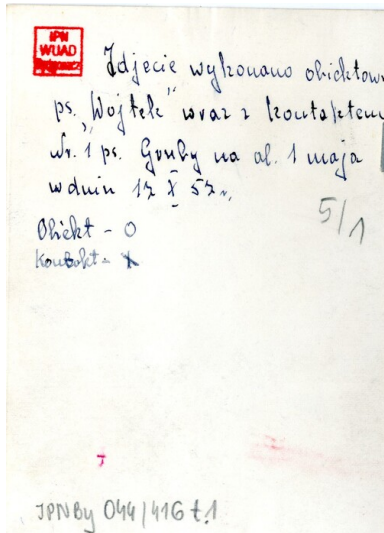 IPN
WUAD
Bydgoszcz
Zdjęcie wykonano obiektowi
ps. "Wojtek" wraz z kontaktem
Nr. 1 ps. Gruby na al. 1 maja
w dniu 17 X 57 r.
5/1
Obiekt - O
Kontakt - X
IPN By 044/416 t.1